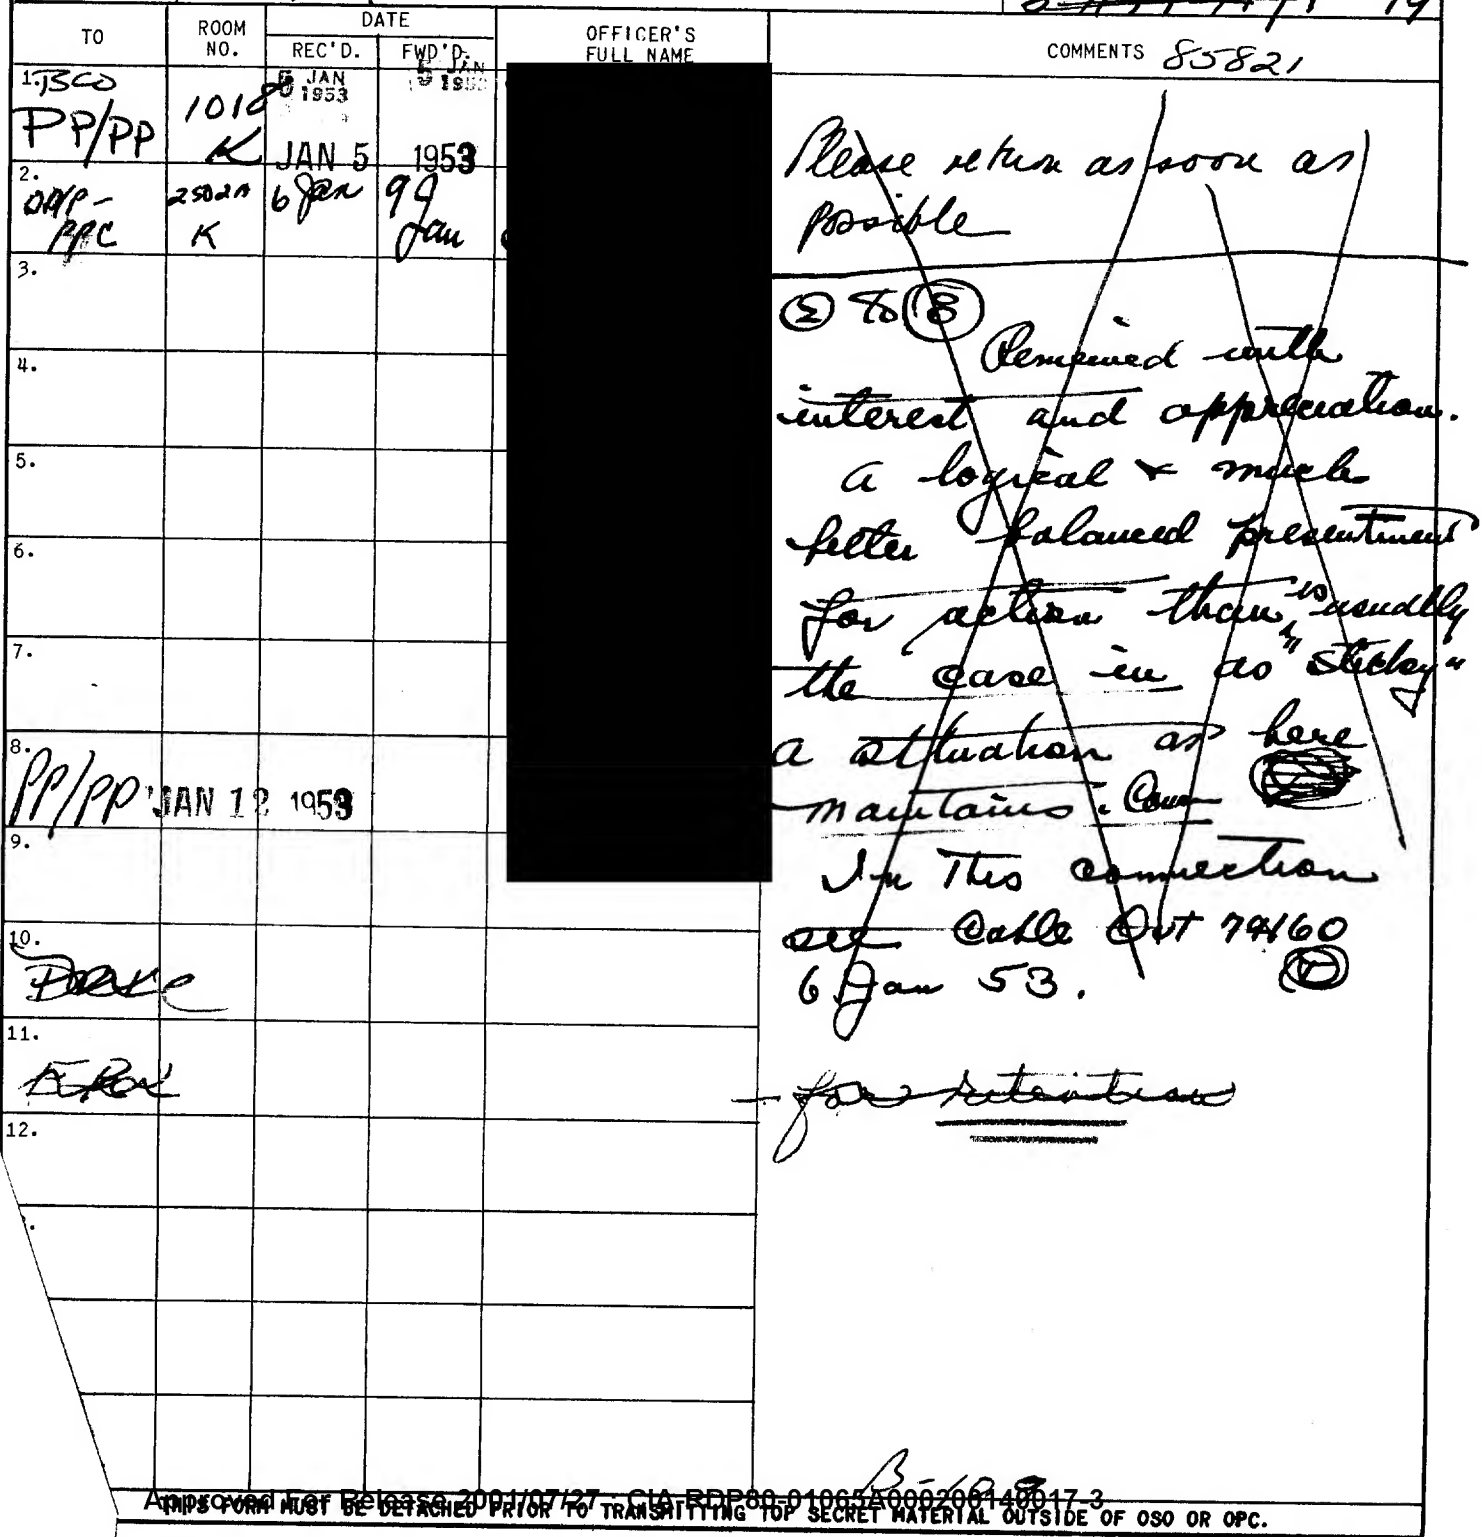 TO
ROOM NO.
DATE
REC'D. FWD'D.
OFFICER'S FULL NAME
COMMENTS 85821
1.
PP/PP
1018 K
5 JAN 1953
JAN 5 1953
Please return as soon as
possible
2.
PPC
2502A K
6 Jan
9 Jan
3.
② to ⑧
Reviewed with
interest and appreciation.
4.
a logical & much
5.
better balanced presentment
6.
for action than is usually
7.
the case in so "sticky"
a situation as here
maintains.
8.
PP/PP JAN 12 1953
9.
In this connection
see Cable Out 79160
6 Jan 53.
10.
11.
for retention
12.
Approved For Release 2001/07/27 : CIA-RDP80-01065A000200140017-3
THIS FORM MUST BE DETACHED PRIOR TO TRANSMITTING TOP SECRET MATERIAL OUTSIDE OF OSO OR OPC.